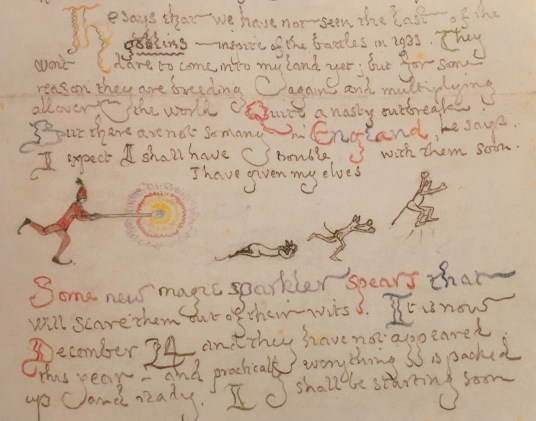 He says that we have not seen the last of the
goblins — in spite of the battles in 1933. They
won't dare to come into my land yet; but for some
reason they are breeding again and multiplying
all over the world. Quite a nasty outbreak.
But there are not so many in England, he says.
I expect I shall have trouble with them soon.
I have given my elves
Some new magic sparkler spears that
will scare them out of their wits. It is now
December 24 and they have not appeared
this year — and practically everything is packed
up and ready. I shall be starting soon